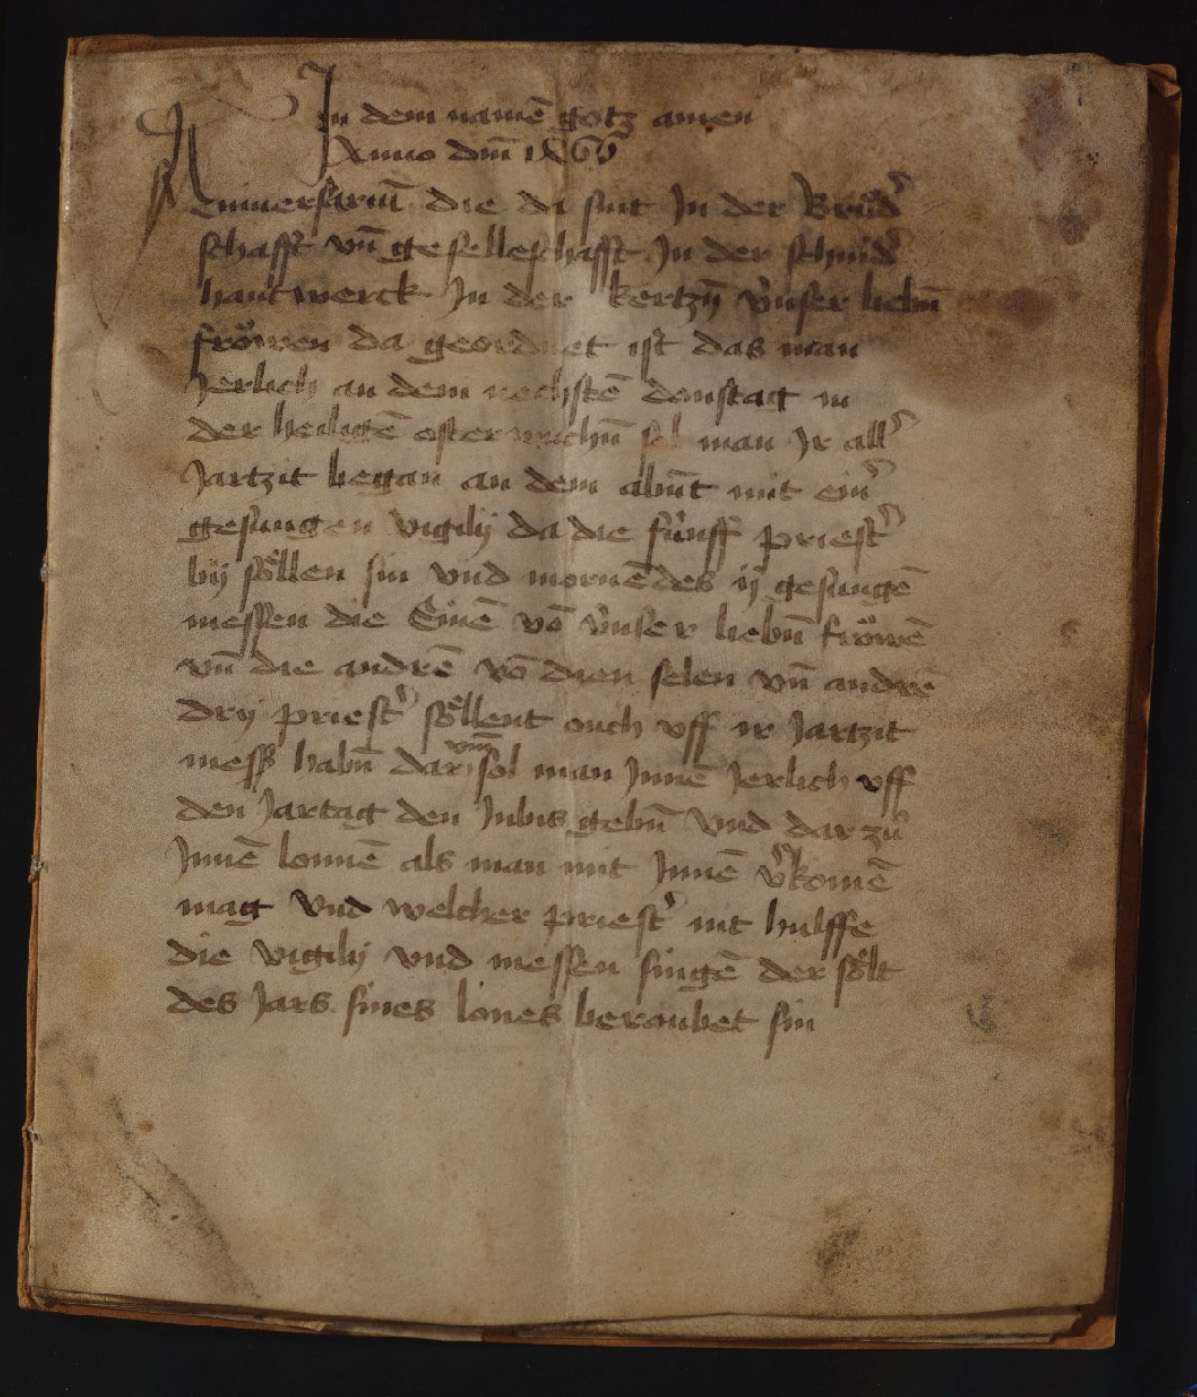 In dem namē gotz amen
Anno dm̄
Aniuersariū die da sint In der Brůd᷑
schafft vn̄ geselleschafft In der schmid᷑
hantwerck In der kertzn̄ v̇nser liebn̄
frǒwen da geordnet ist das man
Jerlich an dem nechstē donstag in
der heiligē oster wuchn̄ sol man Ir all᷑
Jartzit began an dem abn̄t mit ein᷑
gesungen vigilij da die fu̇nff priest᷑
bij sǒllen sin vnd mornēdes ij gesungē
messen die Einē vō v̇nser liebn̄ frǒwē
vn̄ die andrē vō dien selen vn̄ andre
drij priest᷑ sǒllent ouch vff ir Jartzit
mess habn̄ darvm̄ sol man Innē Jerlich vff
den Jartag den Inbis gebn̄ vnd dar zů
Innē lonnē als man mit Innē v᷑komē
mag vnd welcher priest᷑ nit hulffe
die vigilij vnd messen singē der sǒlt
des Jars sines lones beroubet sin